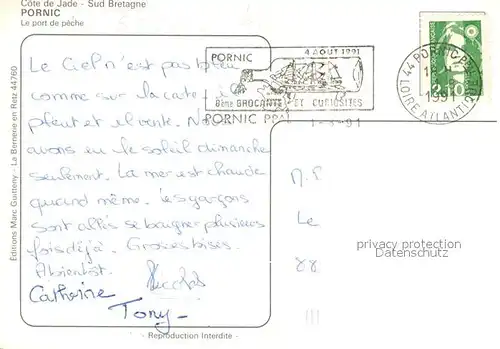 Côte de Jade - Sud Bretagne
PORNIC
Le port de pêche
Le Ciel n'est pas bleu
comme sur la carte. il
pleut et il vente. Nous
avons eu le soleil dimanche
seulement. La mer est chaude
quand même. les garçons
sont allés se baigner plusieurs
fois déjà. Grosses bises.
A bientôt.
Catherine
Tony
Editions Marc Guitteny - La Bernerie en Retz 44760
- Reproduction Interdite -
PORNIC
4 AOUT 1991
8ème BROCANTE ET CURIOSITES
PORNIC PPAL
44 PORNIC PPAL
1991
LOIRE ATLANTIQUE
Le
88
privacy protection
Datenschutz